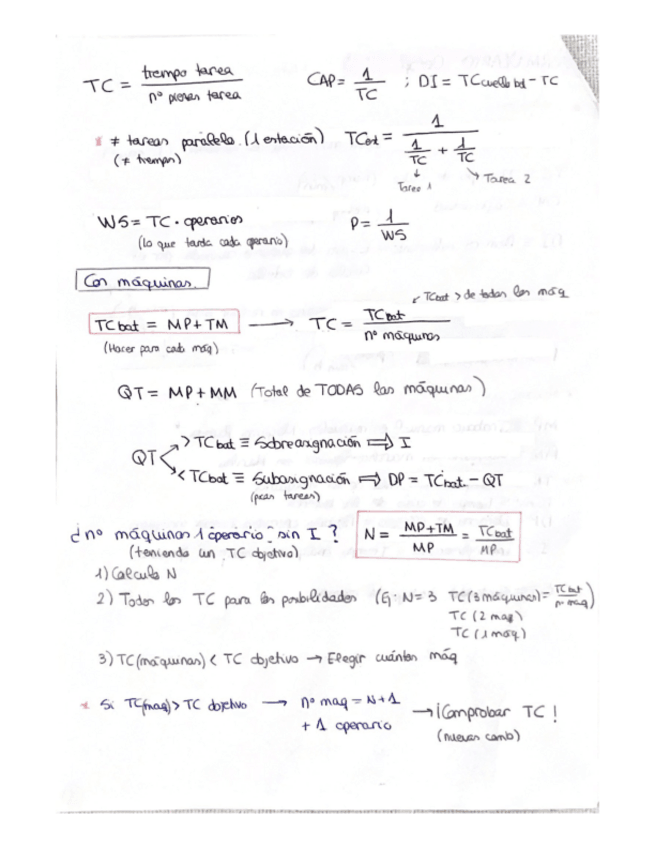 TC = tiempo tarea / nº piezas tarea    CAP = 1/TC ; DI = TCcuello bot - TC
* ≠ tareas paralelo. (1 estación)    TCest = 1 / (1/TC + 1/TC)
(≠ tiempos)
Tarea 1    Tarea 2
WS = TC · operarios    P = 1/WS
(lo que tarda cada operario)
Con máquinas.
TCbat > de todas las máq
TCbat = MP + TM → TC = TCbat / nº máquinas
(Hacer para cada máq)
QT = MP + MM (Total de TODAS las máquinas)
QT > TCbat ≡ Sobreasignación ⇒ I
< TCbat ≡ Subasignación ⇒ DP = TCbat - QT
(pocas tareas)
¿nº máquinas 1 operario sin I?    N = MP+TM / MP = TCbat / MP
(teniendo un TC objetivo)
1) Calcula N
2) Todos los TC para las posibilidades (Ej: N=3 TC(3 máquinas) = TCbat / nº maq)
TC (2 maq)
TC (1 máq)
3) TC(máquinas) < TC objetivo → Elegir cuántas máq
* Si TC(maq) > TC objetivo → nº maq = N+1
+ 1 operario → ¡Comprobar TC!